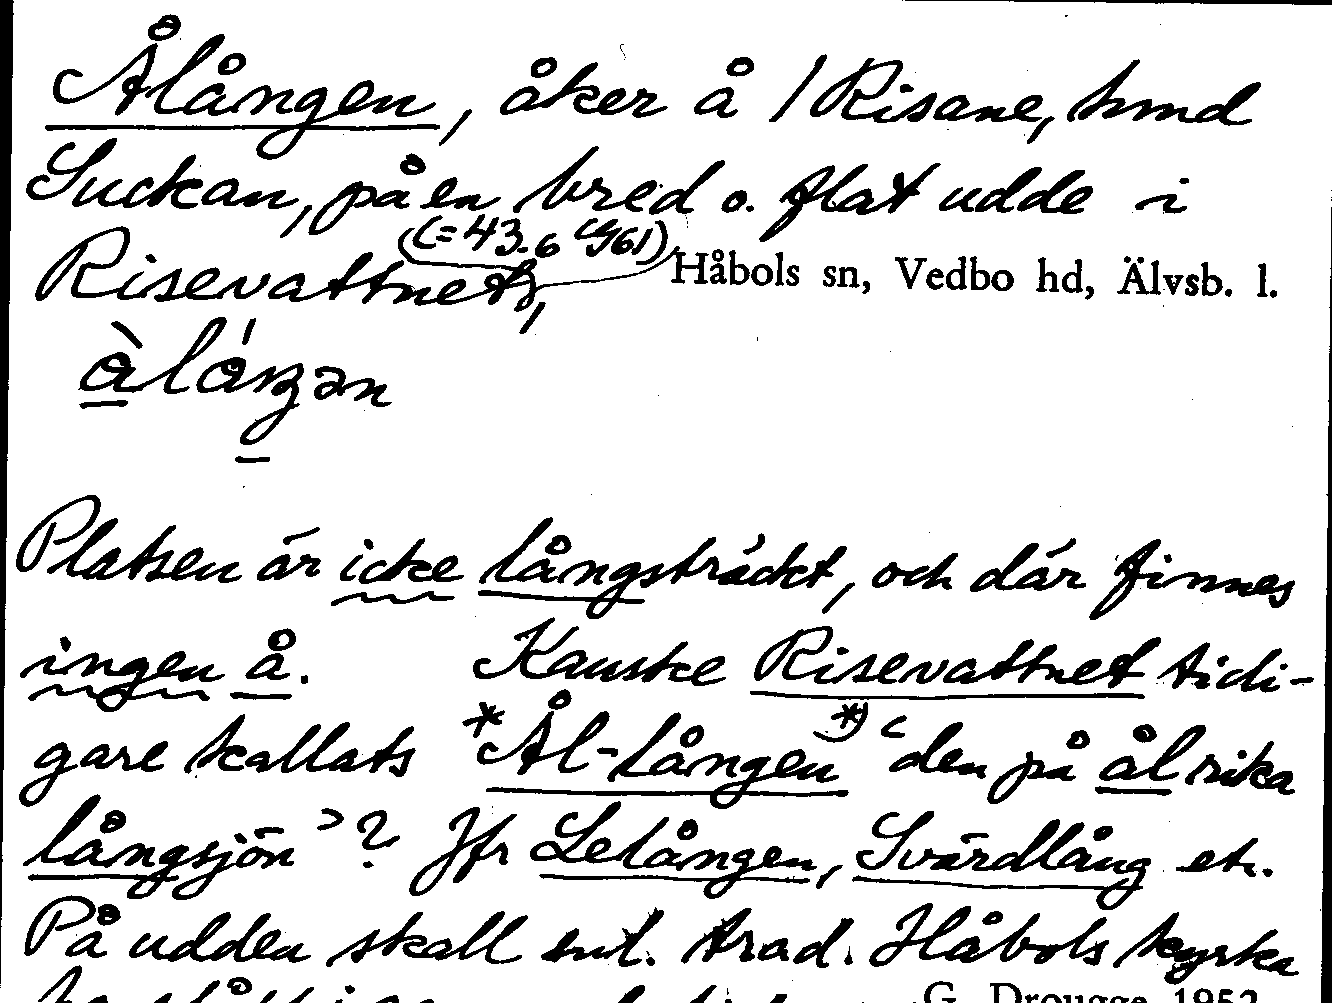 Ålången, åker å /Risane, hmd
Suckan, på en bred o. flat udde i
(=43-6 Gg61)
Risevattnet, Håbols sn, Vedbo hd, Älvsb. l.
àlǻŋən
Platsen är icke långsträckt, och där finnes
ingen å. Kanske Risevattnet tidi-
gare kallats *Ål-lången *) ʿden på ål rika
långsjönʾ? Jfr Lelången, Svärdlång etc.
På udden skall enl. trad. Håbols kyrka
G. Drougge 1952